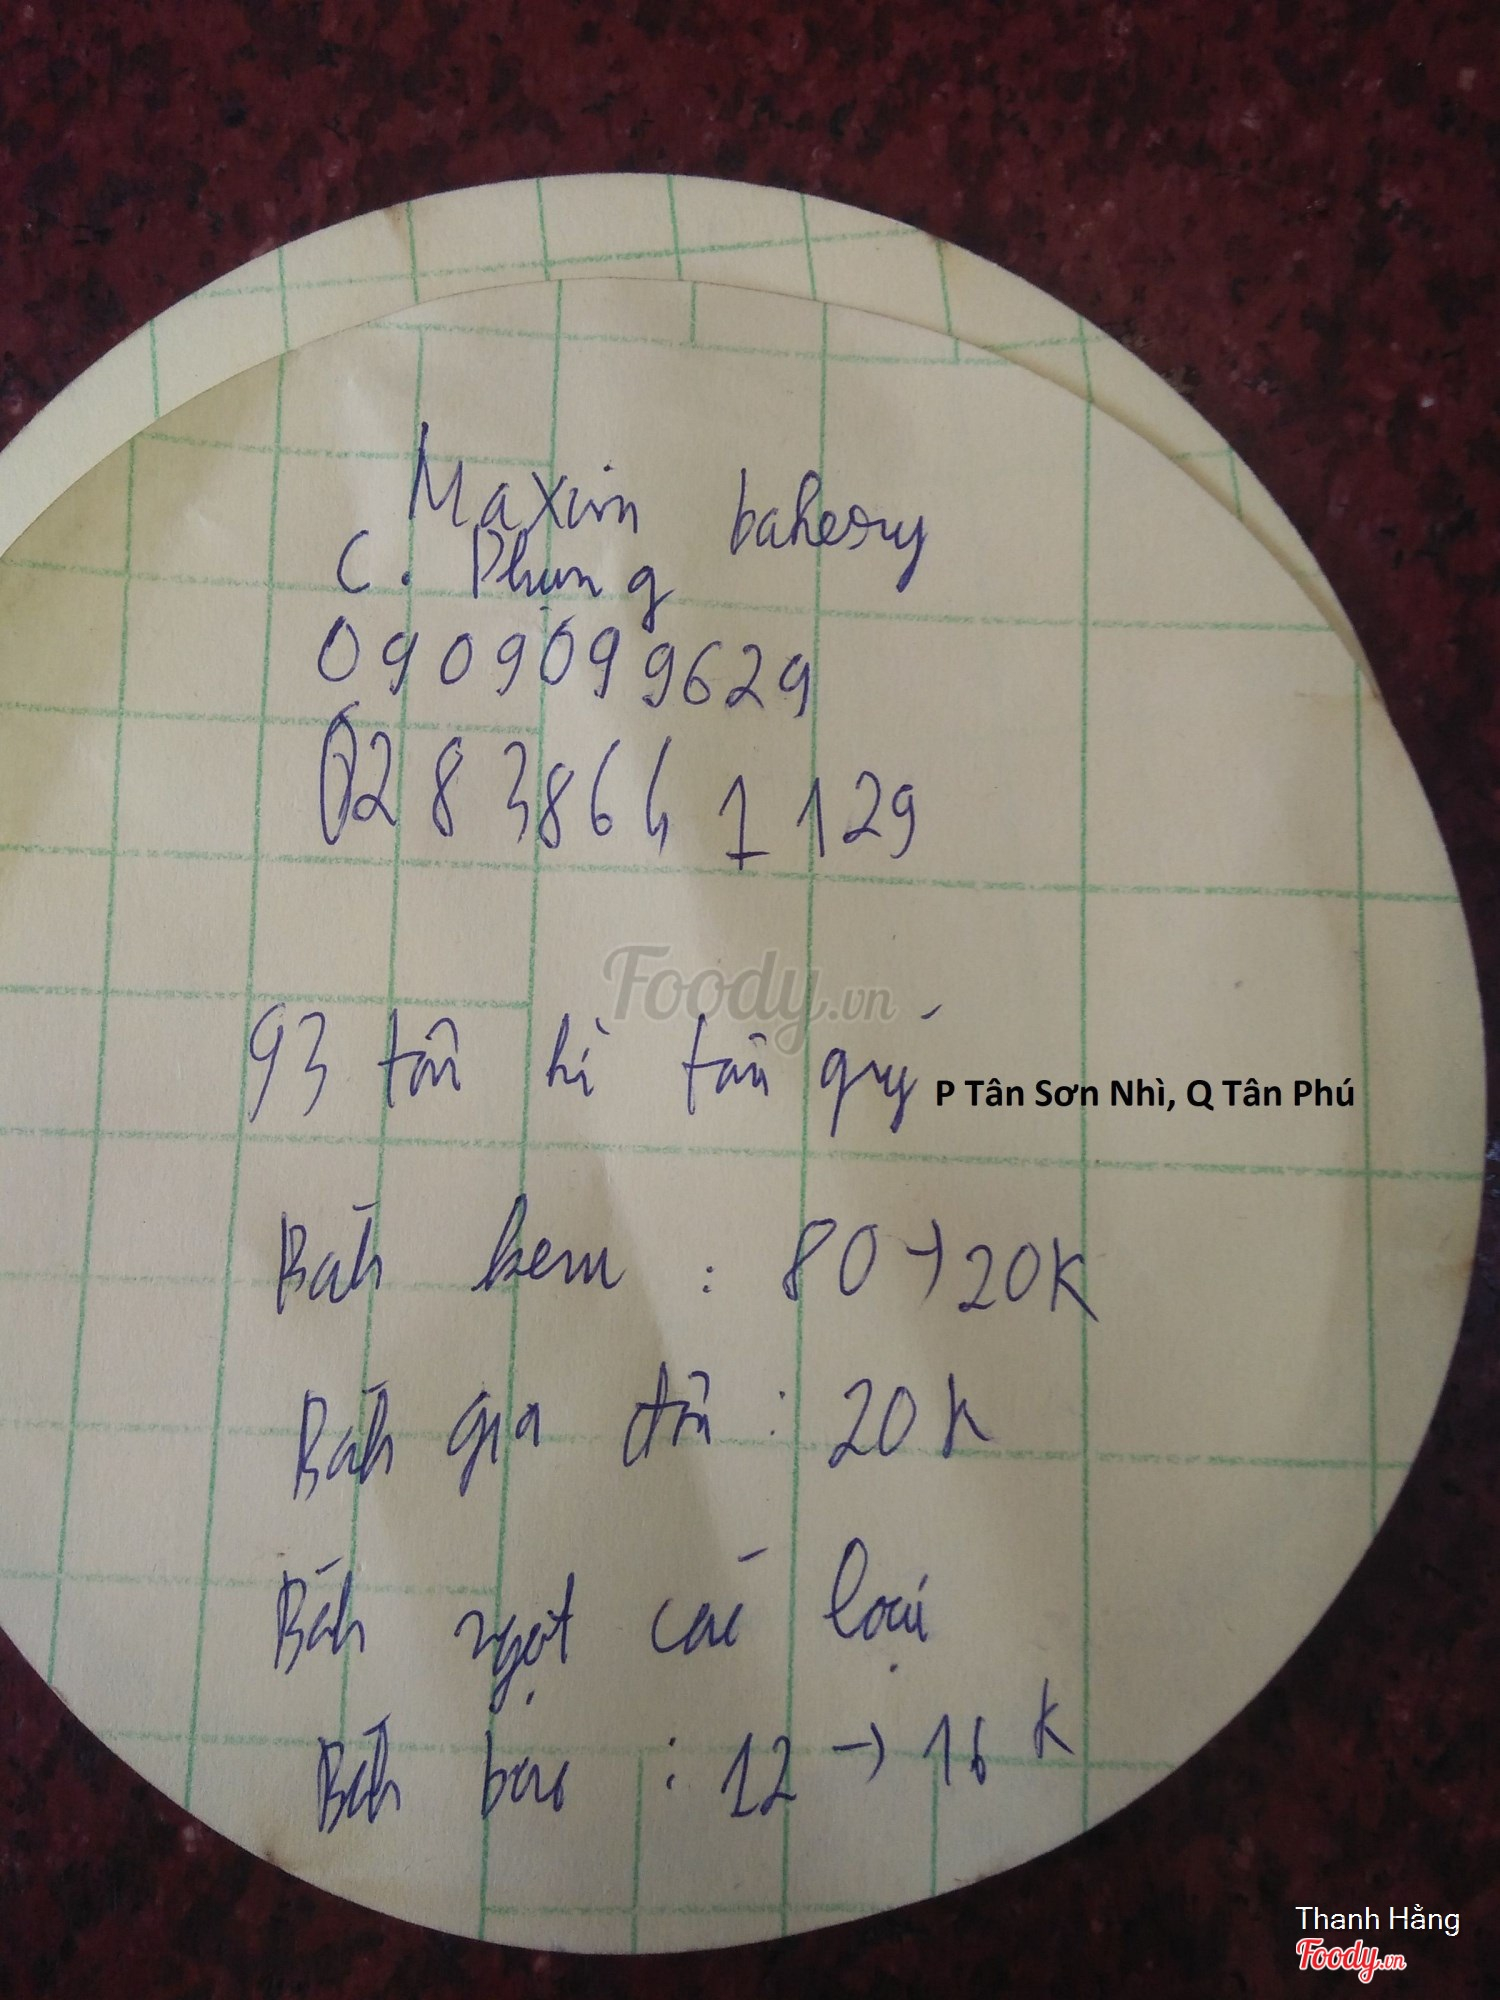 Maxim bakery
C. Phụng
0909099629
02838641129
Foody.vn
93 tân kì tân quý P Tân Sơn Nhì, Q Tân Phú
Bánh kem : 80 → 20K
Bánh gia đình : 20K
Bánh ngọt các loại
Bánh bao : 12 → 16K
Thanh Hằng
Foody.vn